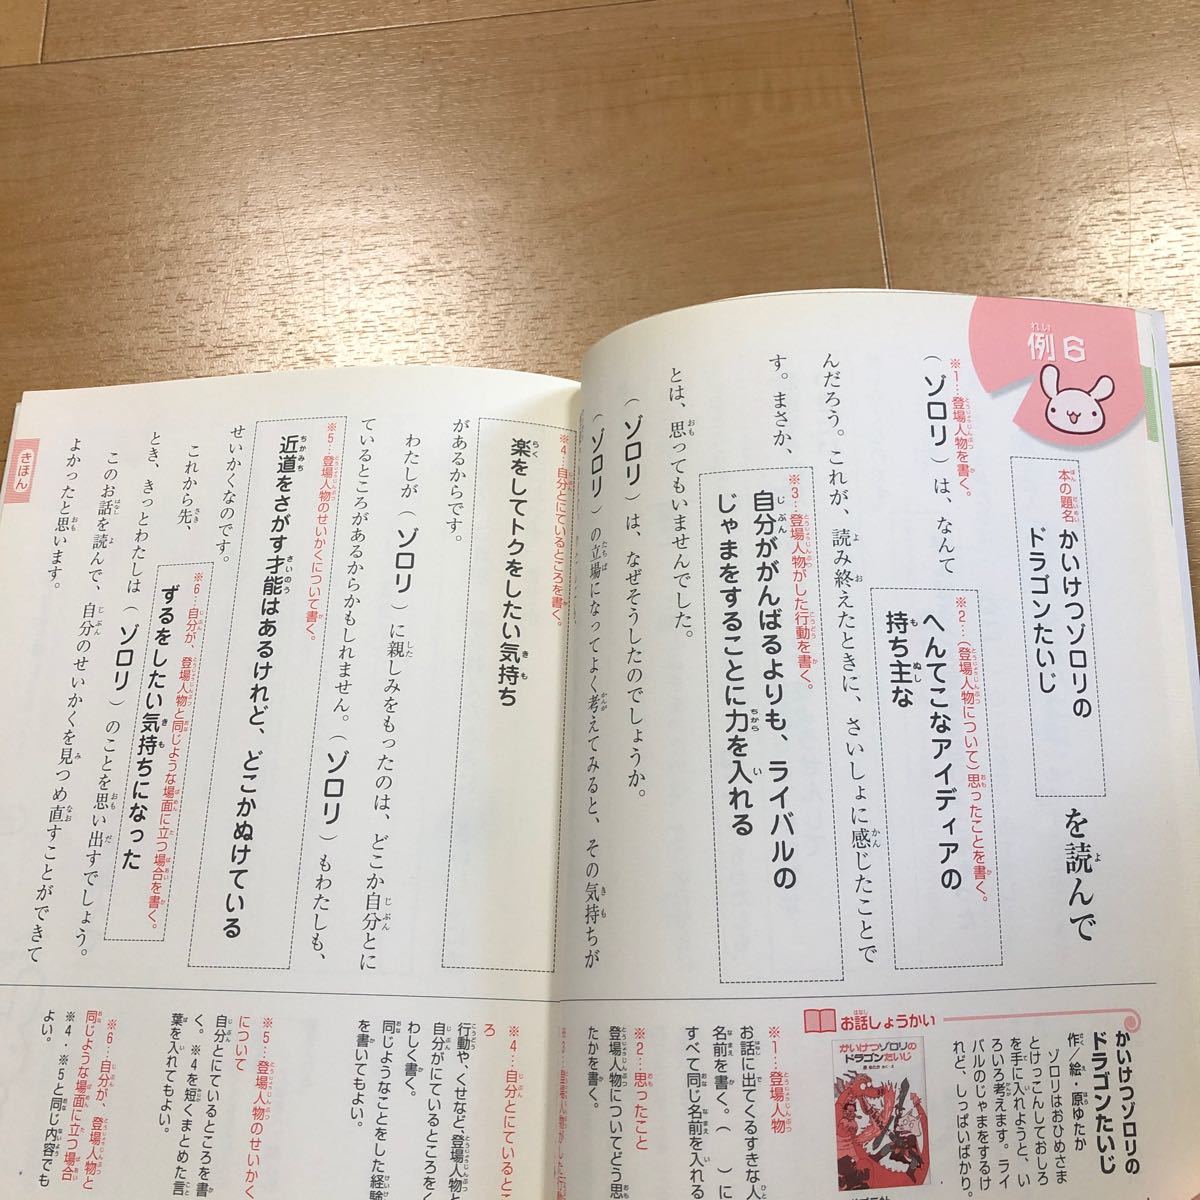 例6
本の題名
かいけつゾロリの
ドラゴンたいじ
を読んで
※1…登場人物を書く。
(ゾロリ)は、なんて
※2…(登場人物について)思ったことを書く。
へんてこなアイディアの
持ち主な
んだろう。これが、読み終えたときに、さいしょに感じたことで
す。まさか、
※3…登場人物がした行動を書く。
自分ががんばるよりも、ライバルの
じゃまをすることに力を入れる
とは、思ってもいませんでした。
(ゾロリ)は、なぜそうしたのでしょうか。
(ゾロリ)の立場になってよく考えてみると、その気持ちが
※4…自分とにているところを書く。
楽をしてトクをしたい気持ち
があるからです。
わたしが(ゾロリ)に親しみをもったのは、どこか自分とに
ているところがあるからかもしれません。(ゾロリ)もわたしも、
※5…登場人物のせいかくについて書く。
近道をさがす才能はあるけれど、どこかぬけている
せいかくなのです。
これから先、
※6…自分が、登場人物と同じような場面に立つ場合を書く。
ずるをしたい気持ちになった
とき、きっとわたしは(ゾロリ)のことを思い出すでしょう。
このお話を読んで、自分のせいかくを見つめ直すことができて
よかったと思います。
きほん
お話しょうかい
かいけつゾロリの
ドラゴンたいじ
作/絵・原ゆたか
ゾロリはおひめさま
とけっこんしておしろ
を手に入れようと、い
ろいろ考えます。ライ
バルのじゃまをするけ
れど、しっぱいばかり。
かいけつゾロリの
ドラゴンたいじ
※1…登場人物
お話に出てくるすきな人
名前を書く。( )に
すべて同じ名前を入れる
※2…思ったこと
登場人物についてどう思
たかを書く。
※4…自分とにているとこ
ろ
行動や、くせなど、登場人物と
自分がにているところをく
わしく書く。
同じようなことをした経験
を書いてもよい。
※5…登場人物のせいかく
について
自分とにているところを書
く。※4を短くまとめた言
葉を入れてもよい。
※6…自分が、登場人物と
同じような場面に立つ場合
※4・※5と同じ内容でも
よい。